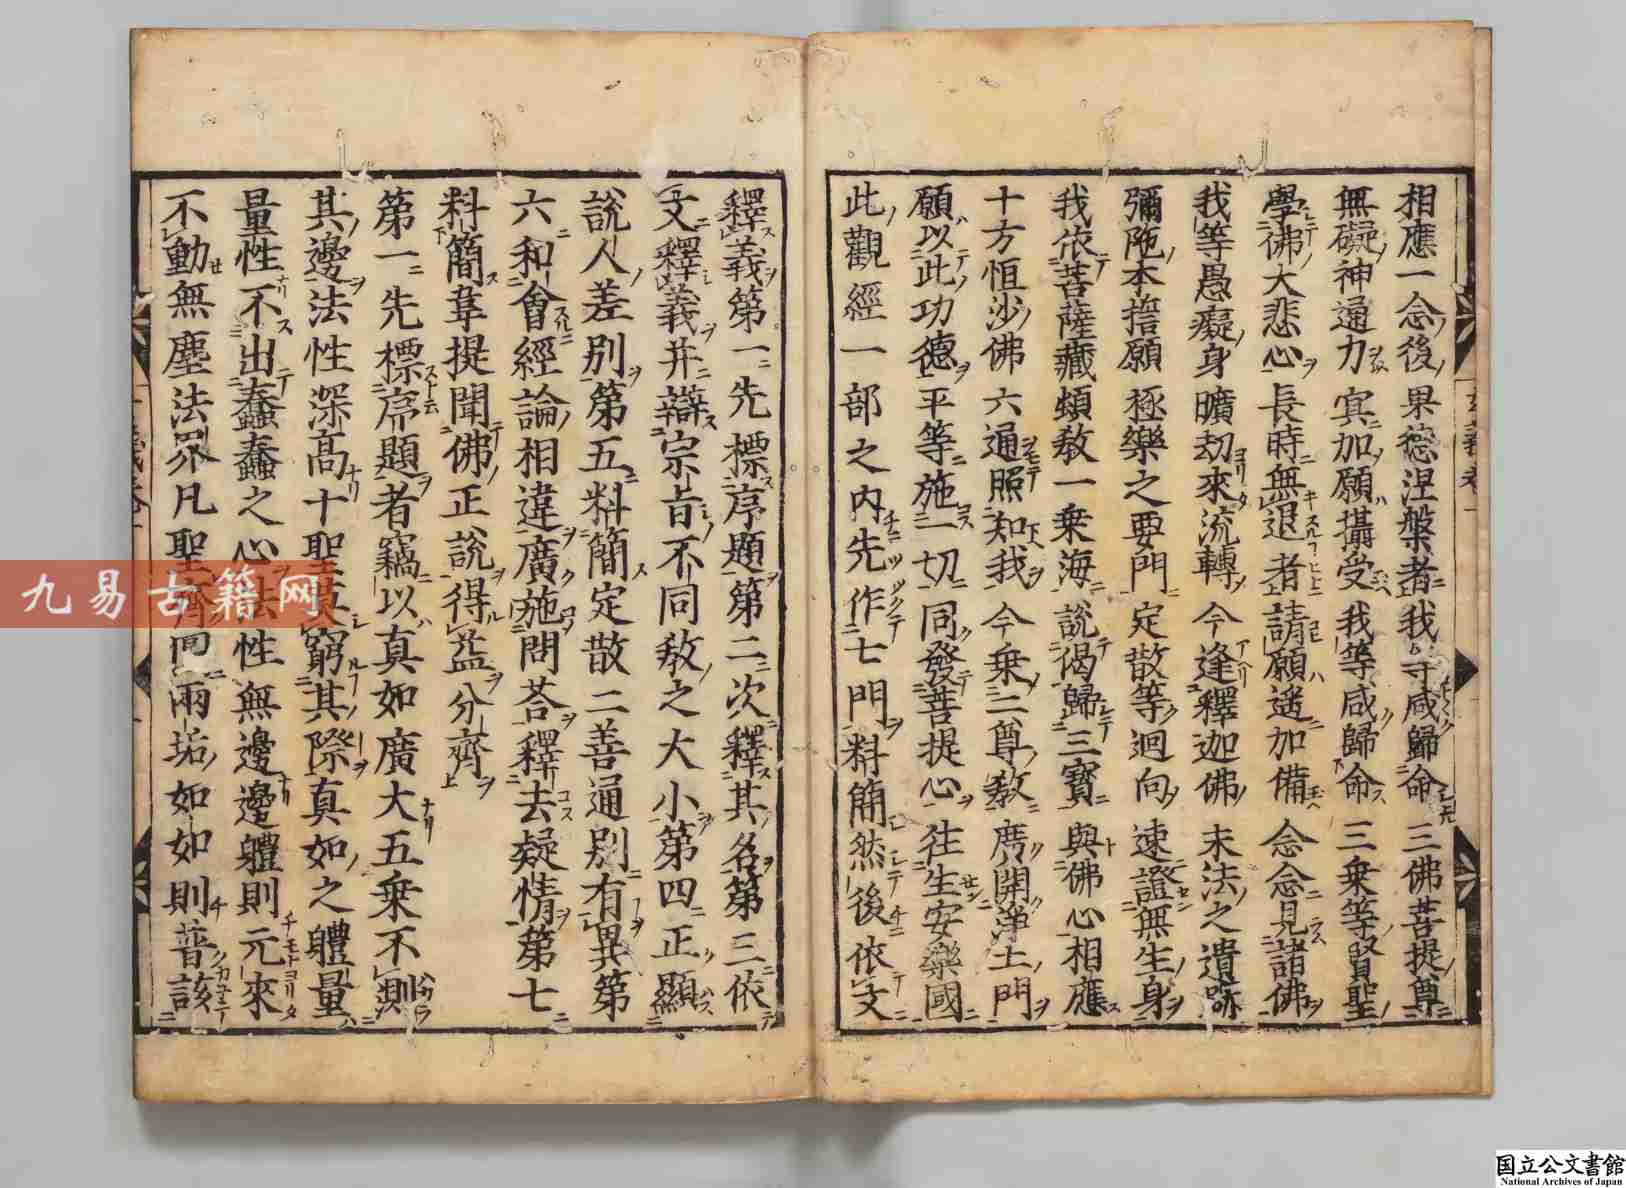 相應一念後　果德涅槃者　我等咸歸命　三佛菩提尊
無礙神通力　冥加願攝受　我等咸歸命　三乗等賢聖
學佛大悲心　長時無退者　請願遥加備　念念見諸佛
我等愚癡身　曠劫來流轉　今逢釋迦佛　末法之遺跡
彌陁本誓願　極樂之要門　定散等迴向　速證無生身
我依菩薩藏　頓教一乗海　說偈歸三寳　與佛心相應
十方恒沙佛　六通照知我　今乗二尊教　廣開淨土門
願以此功德　平等施一切　同發菩提心　往生安樂國
此觀經一部之内先作七門料簡然後依文
釋義第一先標序題第二次釋其名第三依
文釋義并辯宗旨不同教之大小第四正顯
說人差別第五料簡定散二善通別有異第
六和會經論相違廣施問荅釋去疑情第七
料簡韋提聞佛正說得益分齊
第一先標序題者竊以真如廣大五乗不測
其邊法性深髙十聖莫窮其際真如之體量
量性不出蠢蠢之心法性無邊邊體則元來
不動無塵法界凡聖齊圓兩垢如如則普該
九易古籍网
国立公文書館
National Archives of Japan